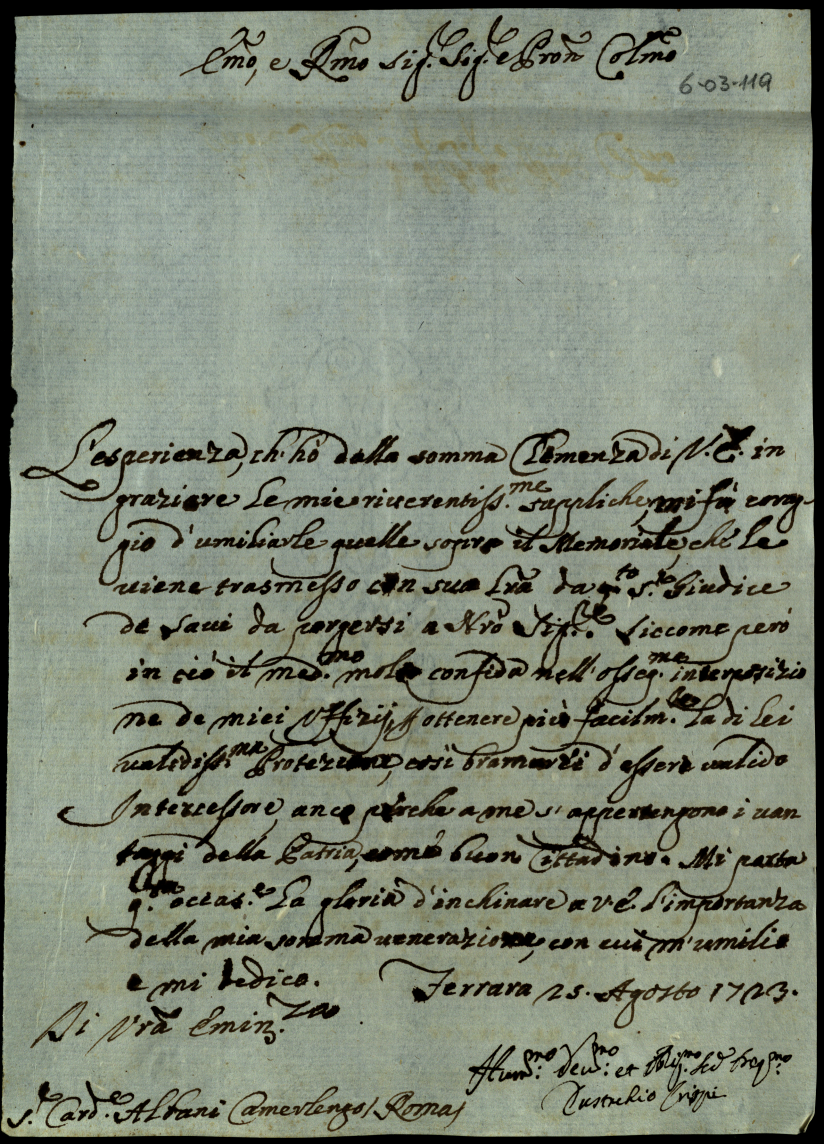 Emo, e Rmo Sig.r Sig.r e Pron Colmo
6-03-119
L'esperienza, ch'hò dalla somma Clemenza di V.E. in
graziare le mie riverentiss.me suppliche, mi fà corag-
gio d'umiliarle quelle sopra il Memoriale, che le
viene trasmesso con sua Lra da q.to S.r Giudice
de Savi da porgersi a Nro Sig.re. Siccome però
in ciò il med.mo molto confida nell'osseq.ma interposizio
ne de miei Uffizij, p ottenere più facilm.te la di Lei
validiss.ma Protezione, così bramarei d'essere valido
Intercessore, anco perche a me s'appartengono i van
taggi della Patria, come buon Cittadino. Mi porta
q.sta occas.e la gloria d'inchinare a V.E. l'importanza
della mia somma venerazione, con cui m'umilio
e mi dedico. Ferrara 25. Agosto 1723.
Di Vra Emin.za
Hum.mo Dev.mo et Obligmo Ser
Eustachio Crispi
S.r Card.e Albani Camerlengo / Roma /